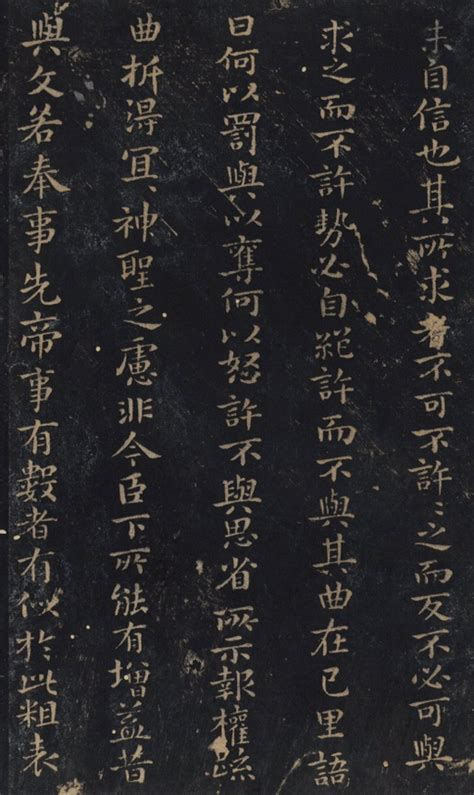 未自信也其所求者不可不許〻之而反不必可與
求之而不許勢必自絕許而不與其曲在己里語
曰何以罰與以奪何以怒許不與思省所示報權疏
曲折得冝神聖之慮非今臣下所能有增益昔
與文若奉事先帝事有數者有似於此粗表